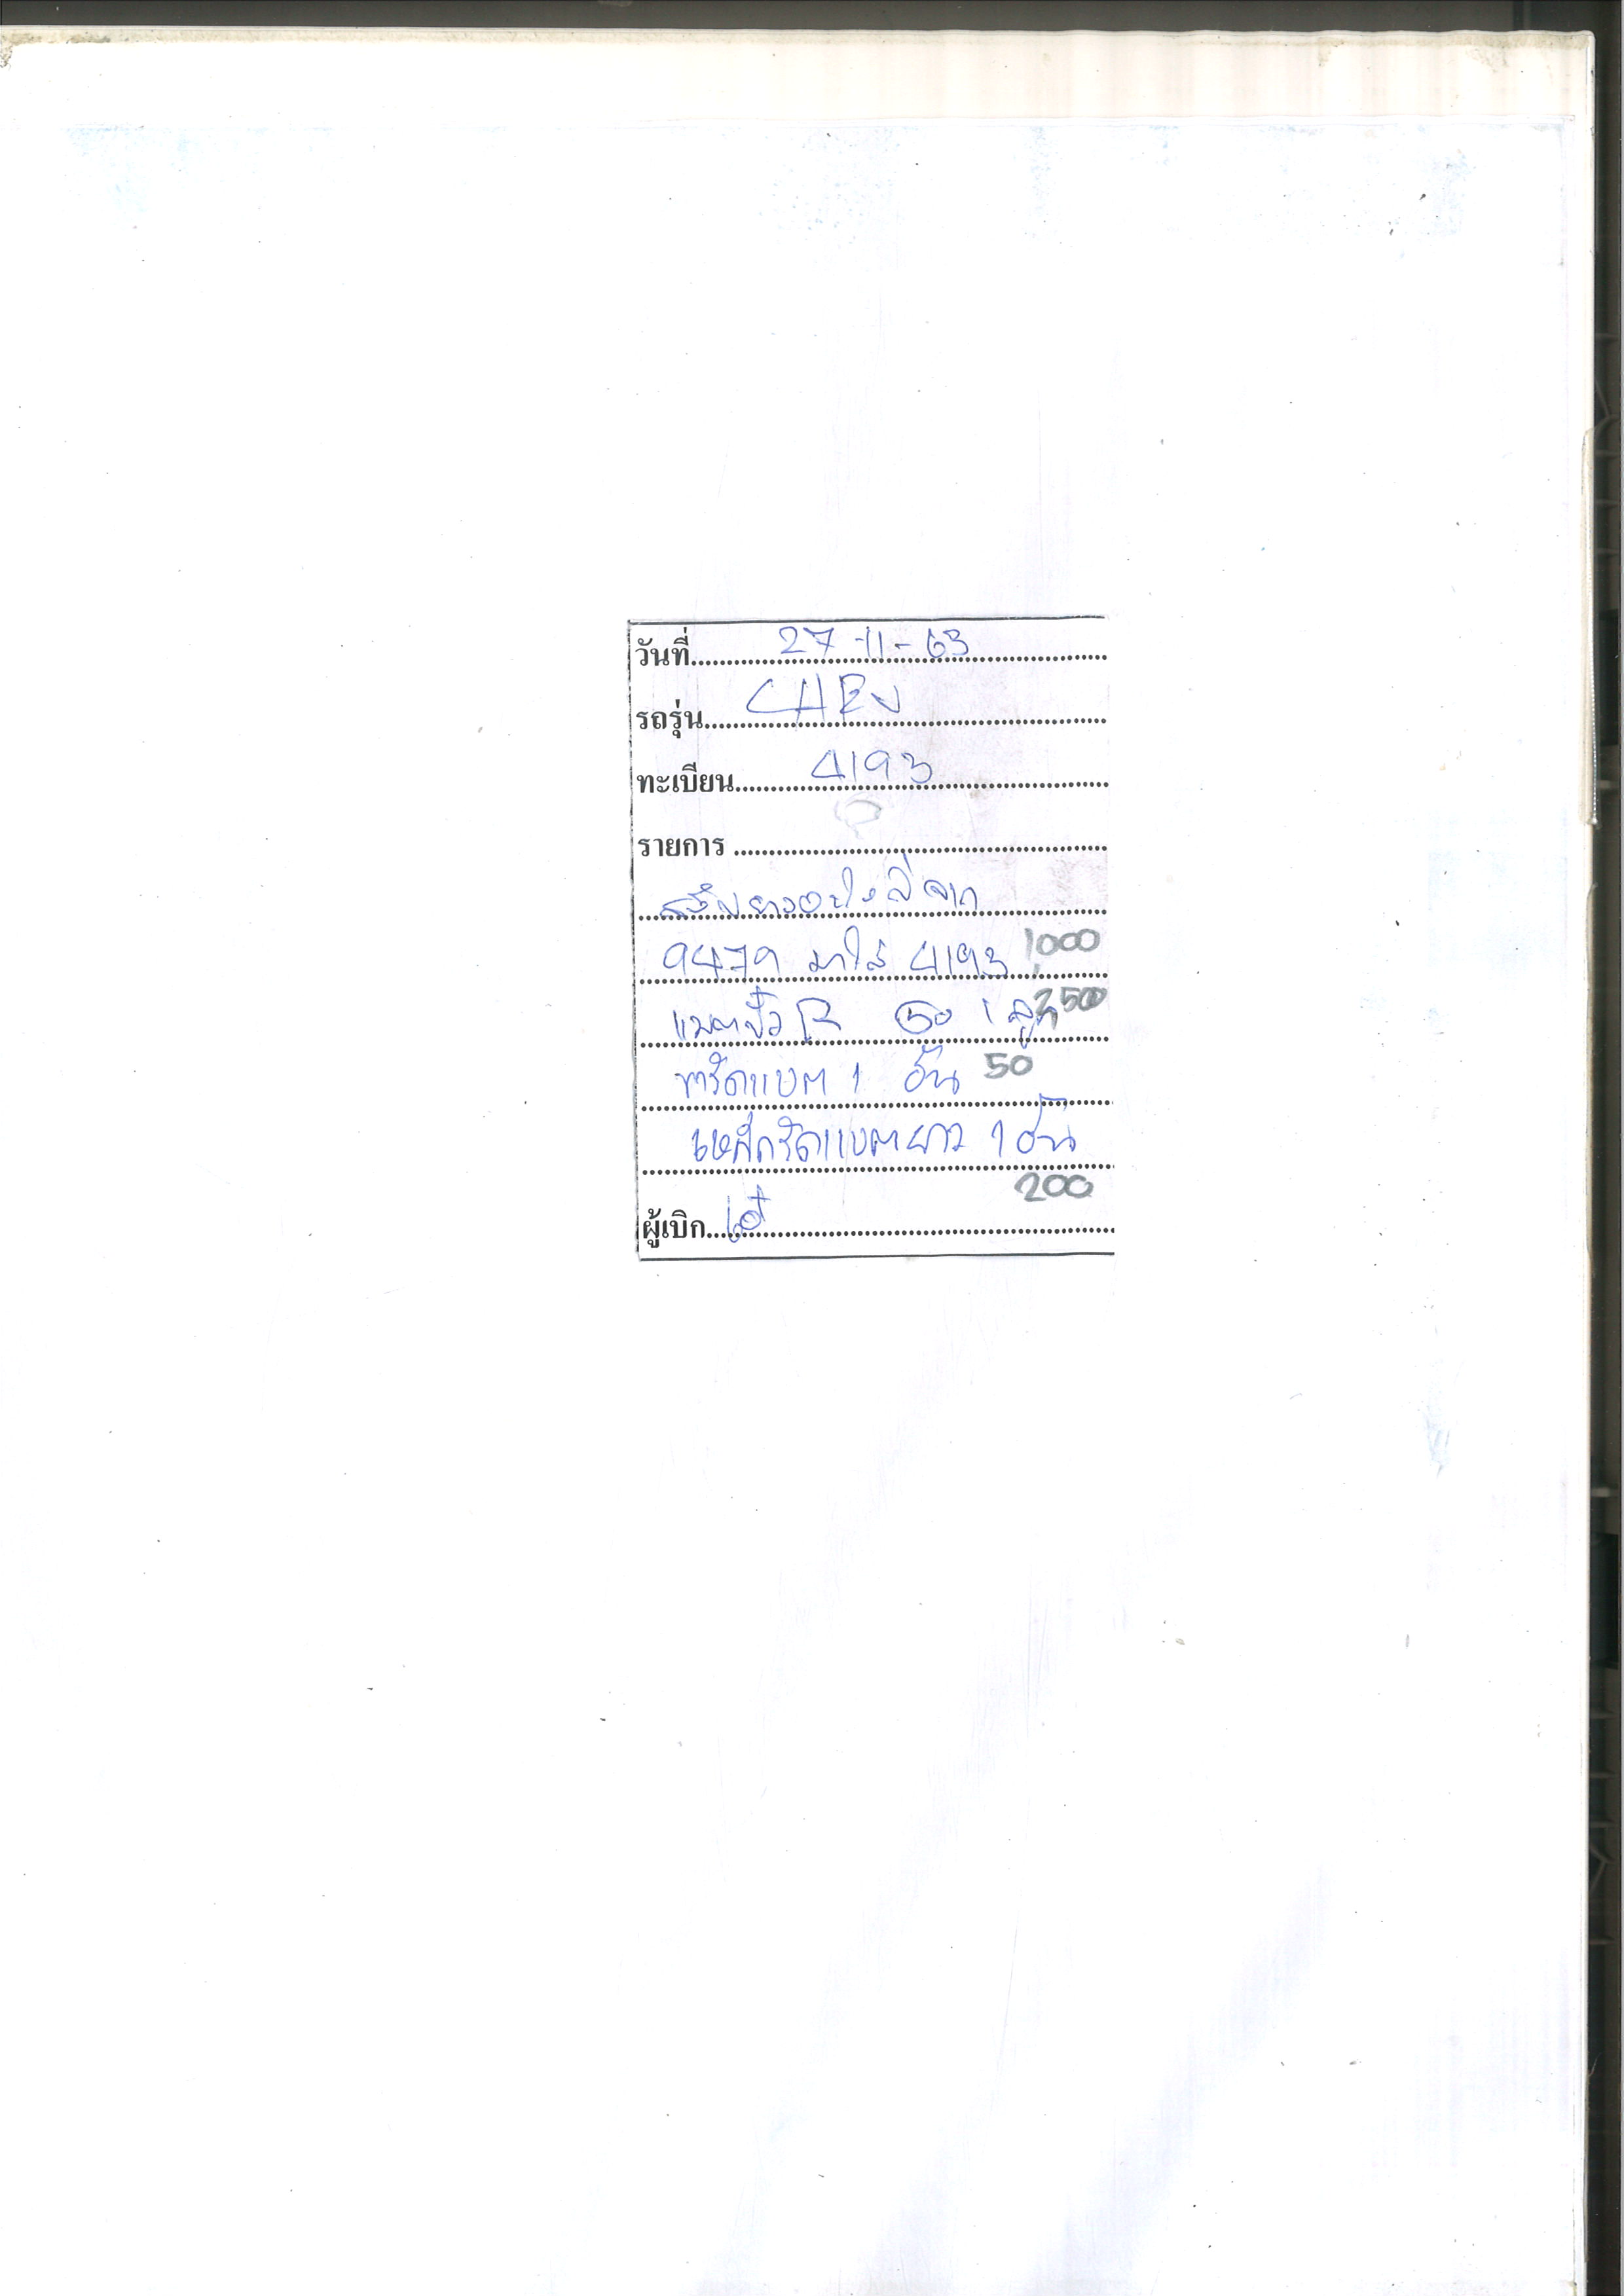 วันที่ 27-11-63
รถรุ่น CHEV
ทะเบียน 4193
รายการ
สลับยางอะไหล่จาก
9479 มาใส่ 4193 1,000
แบตขั้ว R 50 1 ลูก 2500
ขารัดแบต 1 อัน 50
เหล็กรัดแบตยาว 1 อัน
200
ผู้เบิก เอ๋